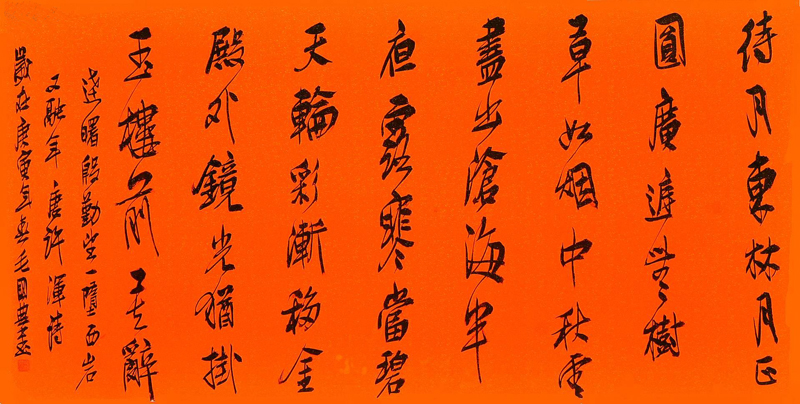 待月東林月正
圓廣無樹
草如烟中秋雲
盡出滄海半
夜露寒當碧
天輪彩漸移金
殿外鏡光猶掛
玉樓前莫辭
達曙殷勤望一墮西岩
又隔年唐許渾詩
歲在庚寅年春毛国典書